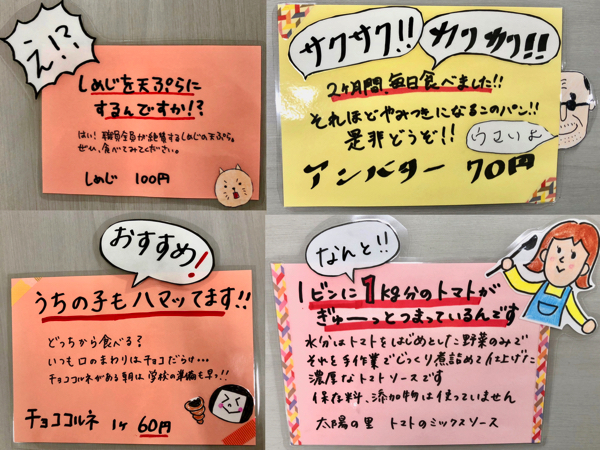 え!?
しめじを天ぷらに
するんですか!?
はい!職員全員が絶賛するしめじの天ぷら。
ぜひ、食べてみてください。
しめじ 100円
サクサク!!
カリカリ!!
2ヶ月間、毎日食べました!!
それほどやみつきになるこのパン!!
是非どうぞ!!
うまいよ
アンバター 70円
おすすめ!
うちの子もハマッてます!!
どっちから食べる?
いつも口のまわりはチョコだらけ…
チョココルネがある朝は学校の準備も早っ!!
チョココルネ 1ヶ 60円
なんと!!
1ビンに1kg分のトマトが
ぎゅーっとつまっているんです
水分はトマトをはじめとした野菜のみで
それを手作業でじっくり煮詰めて仕上げた
濃厚なトマトソースです
保存料、添加物は使っていません
太陽の里 トマトのミックスソース